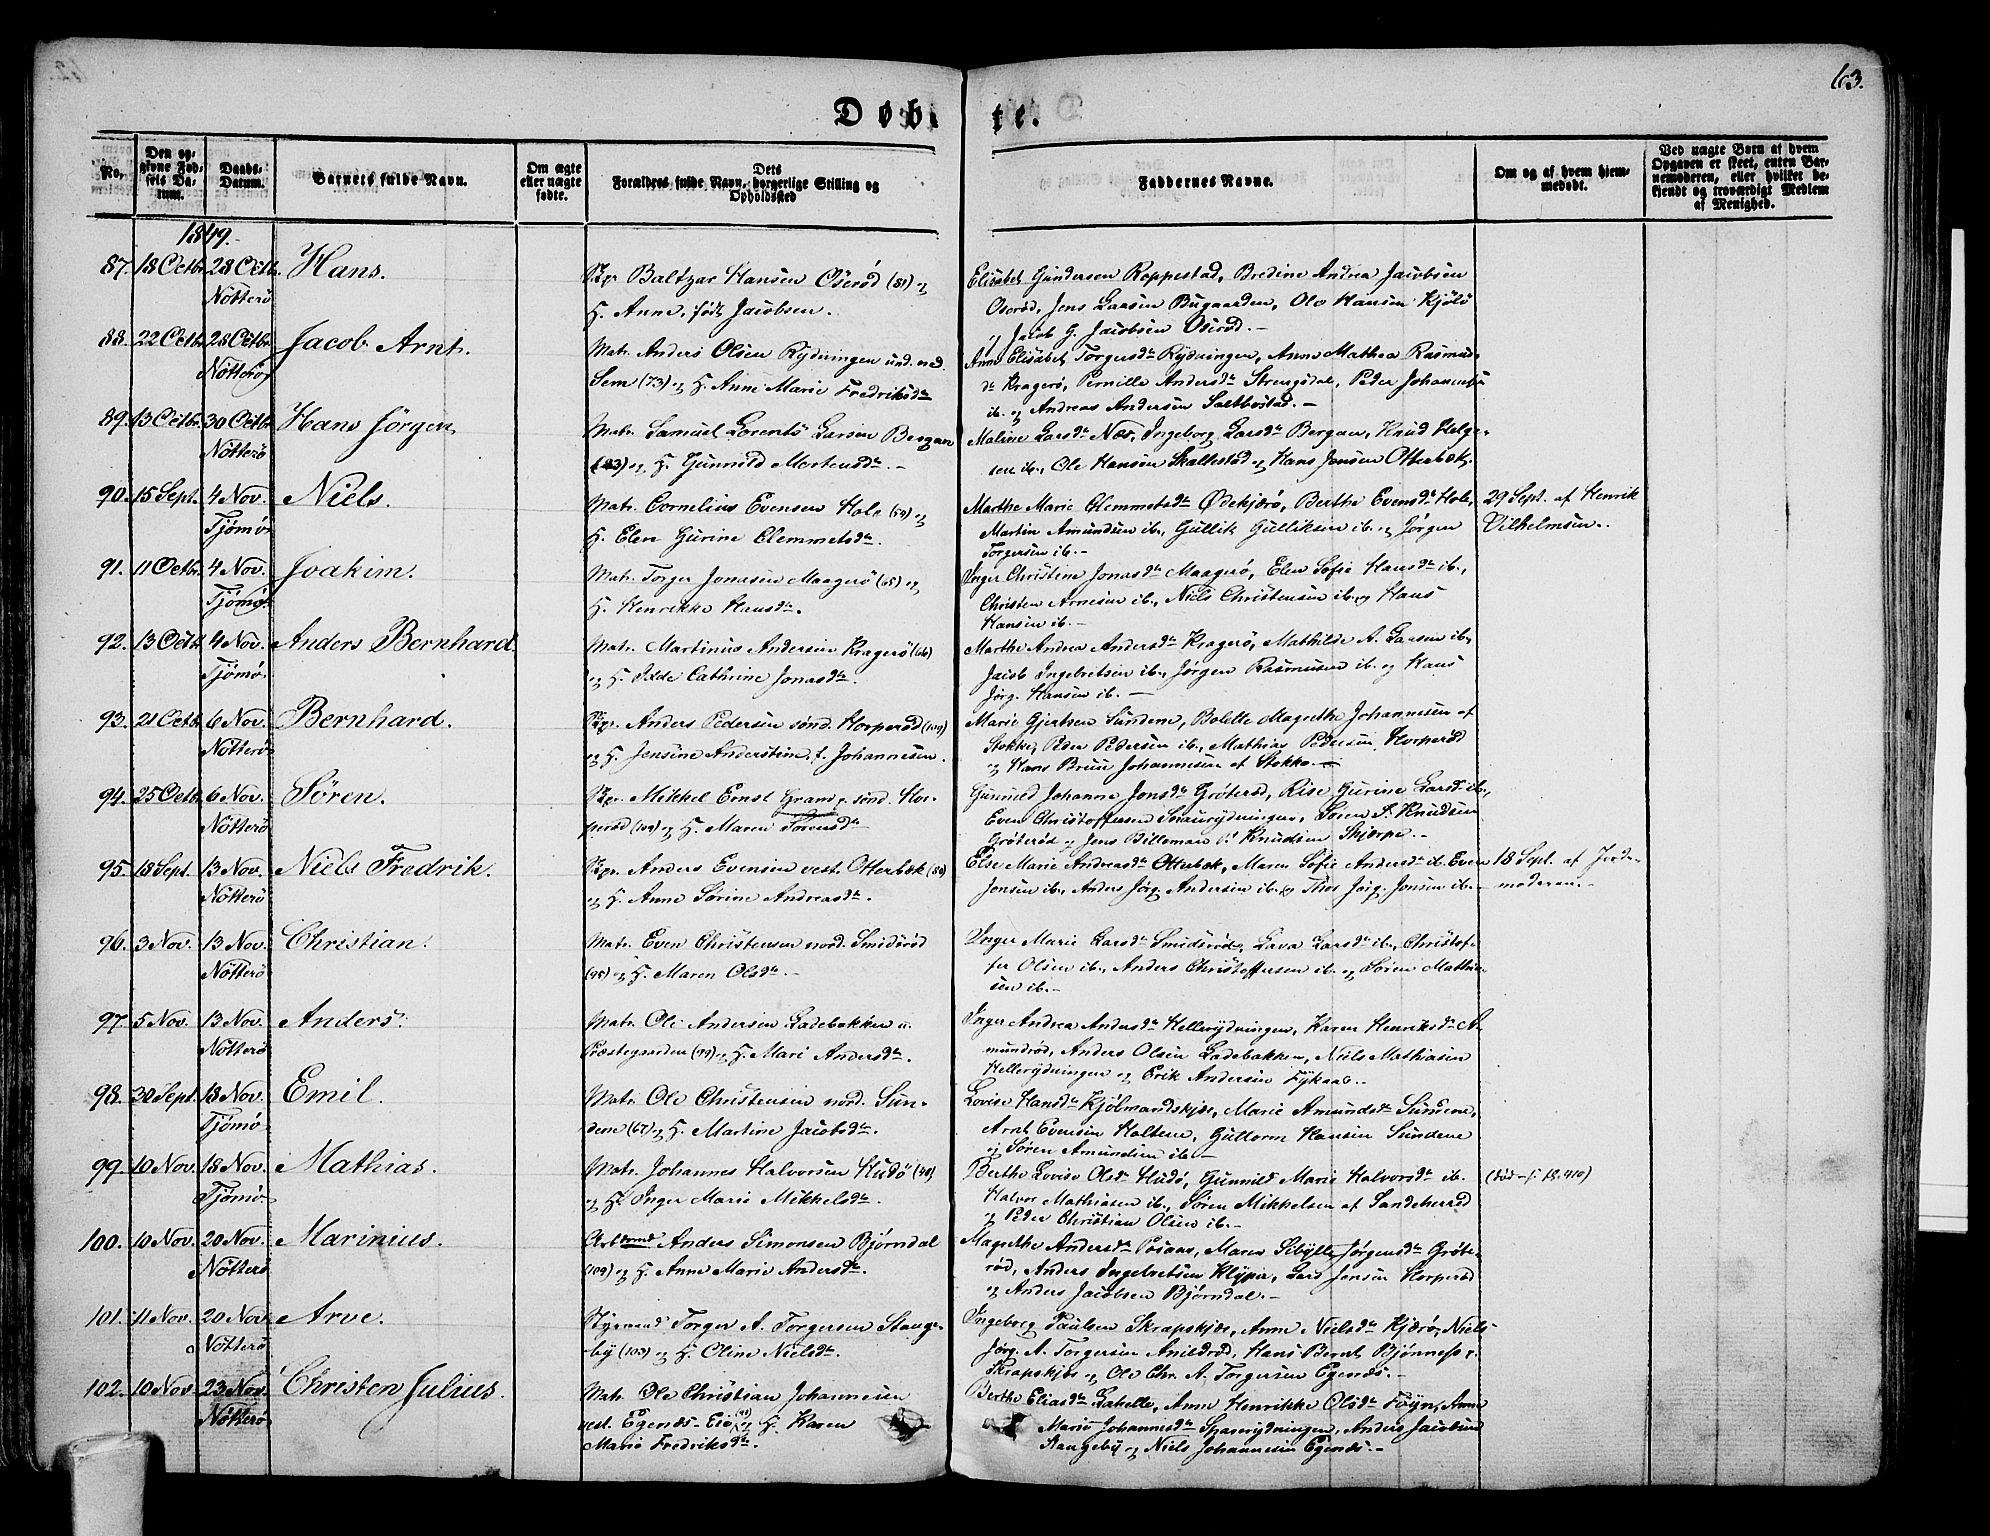 63.
Døbte.
No.
Den opgivne Fødsels Datum.
Daabs-Datum.
Barnets fulde Navn.
Om ægte eller uægte fødte.
Dets Forældres fulde Navn, borgerlige Stilling og Opholdssted
Faddernes Navne.
Om og af hvem hjemmedøbt.
Ved uægte Børn af hvem Opgaven er skeet, enten Barnemoderen, eller hvilket bekjendt og troværdigt Medlem af Menighed.
1849.
87. 18 Octbr. 28 Octb. Nötterö Hans.
Baltzar Hansen Oserød (81) og
H. Anne, født Jacobsen.
Elisabet Gundersen Roppestad, Bredine Andrea Jacobsen
Oserød, Jens Larsen Bugaarden, Ole Hansen Kjölö
og Jacob G. Jacobsen Oserød.-
88. 22 Octbr. 28 Octbr. Nötterö Jacob Arnt.
Matr. Anders Olsen Rydningen und. ned.
Sem (73) og H. Anne Marie Fredriksdr
Anne Elisabet Torgersdr Rydningen, Anne Mathea Rasmus-
dr Kragerö, Pernille Andersdr Strengsdal, Peder Johannesen
ib. og Andreas Andersen Saltbustad.-
89. 13 Octbr. 30 Octbr. Nötterö Hans Jörgen
Matr. Samuel Lorents Larsen Bergan
(83) og H. Gunnild Mortensdr.-
Maline Larsdr Næs, Ingeborg Larsdr Bergan, Knud Helge-
sen ib., Ole Hansen Skallestad og Hans Jensen Otterbek.
90. 15 Sept. 4 Nov. Tjømö Niels.
Matr. Cornelius Evensen Hole (59) og
H. Elen Gurine Clemmetsdr.
Marthe Marie Clemmetsdr Ødekjærö, Berthe Evensdr Hole,
Martin Amundsen ib., Gullik Gulliksen ib. og Jörgen
Torgersen ib.-
29 Sept. af Henrik
Vilhelmsen.
91. 11 Octbr. 4 Nov. Tjømö Joakim.
Matr. Torger Jonasen Maagerö (65) og
H. Henrikke Hansdr.
Inger Christine Jonasdr Maagerö, Elen Sofie Hansdr ib.,
Christen Arnesen ib., Niels Christensen ib. og Hans
Hansen ib.-
92. 13 Octbr. 4 Nov. Tjømö Anders Bernhard
Matr. Martinus Andersen Kragerö (66)
og H. Idde Cathrine Jonasdr.
Marthe Andrea Andersdr Kragerö, Mathilde A. Larsen ib.,
Jacob Ingebretsen ib., Jörgen Rasmusen ib. og Hans
Jörg. Hansen ib.-
93. 21 Octbr. 6 Nov. Nötterö Bernhard.
Anders Pedersen sönd. Horperød (104)
og H. Jensine Anderstine, f. Johannesen.
Marie Gjertsen Sundene, Bolette Magrethe Johannesen af
Stokke, Peder Pedersen ib., Mathias Pedersen Horperød
og Hans Bruu Johannesen af Stokke.-
94. 25 Octbr. 6 Nov. Nötterö Sören.
Mikkel Ernst Grang, sönd. Hor-
perød (104) og H. Maren Sörensdr
Gunnild Johanne Jonsdr Gröteröd, Rise Gurine Larsdr ib.,
Even Christoffersen Snaurydningen, Sören S. Knudsen
Gröteröd og Jens Billeman Knudsen Skjerpe.-
95. 18 Sept. 13 Nov. Nötterö Niels Fredrik.
Anders Evensen vest. Otterbek (80)
og H. Anne Sörine Andreasdr.
Else Marie Andreasdr Otterbek, Maren Sofie Andersdr ib. Even
Jensen ib., Anders Jörg. Andersen ib. og Thor Jörg. Jensen ib.-
18 Sept. af Jorde-
moderen.-
96. 3 Nov. 13 Nov. Nötterö Christian.
Matr. Even Christensen nord. Smideröd
(95) og H. Maren Olsdr.-
Inger Marie Larsdr Smideröd, Lava Larsdr ib., Christof-
fer Olsen ib., Anders Christoffersen ib. og Sören Mathia-
sen ib.-
97. 5 Nov. 13 Nov. Nötterö Anders.
Matr. Ole Andersen Ladebakken u.
Præstegaarden (79) og H. Mari Andersdr.
Inger Andrea Andersdr Hellerydningen, Karen Henriksdr A-
mundröd, Anders Olsen Ladebakken, Niels Mathiasen
Hellerydningen og Erik Andersen Fykaas.-
98. 30 Sept. 18 Nov. Tjømö Emil.
Matr. Ole Christensen nord. Sun-
dene (67) og H. Martine Jacobsdr.
Lovise Hansdr Kjölmandskjær, Marie Amundsdr Sundene,
Arnt Evensen Holtene, Guttorm Hansen Sundene
og Sören Amundsen ib.-
99. 10 Nov. 18 Nov. Tjømö Mathias.
Matr. Johannes Halvorsen Hudö (40)
og H. Inger Marie Mikkelsdr.
Berthe Lovise Olsdr Hudö, Gunnild Marie Halvorsdr ib.
Halvor Mathiasen ib., Sören Mikkelsen af Sandeherred
og Peder Christian Olsen ib.-
100. 10 Nov. 20 Nov. Nötterö Marinius.
Anders Simonsen Bjørndal
(109) og H. Anne Marie Andersdr.
Magrethe Andersdr Posaas, Maren Sibylle Jörgensdr Gröte-
röd, Anders Ingebretsen Klyper, Lars Jensen Horperød
og Anders Jacobsen Bjørndal.-
101. 11 Nov. 20 Nov. Nötterö Arve.
Styrmand Torger A. Torgersen Stange-
by (103) og H. Oline Nielsdr.
Ingeborg Paulsen Skrapskjær, Anne Nielsdr Kjærö, Niels
Jörg. A. Torgersen Anildröd, Hans Bernt Bjönness
Skrapskjær og Ole Chr. A. Torgersen Egenes.-
102. 10 Nov. 23 Nov. Nötterö Christen Julius.
Matr. Ole Christian Johannesen
vest. Egenes-Eie og H. Karen
Marie Fredriksdr.
Berthe Eliasdr Gabelle, Anne Henrikke Olsdr Föyn, Anne
Marie Johannesdr Sparerydningen, Anders Jacobsen
Stangeby og Niels Johannesen Egenes.-